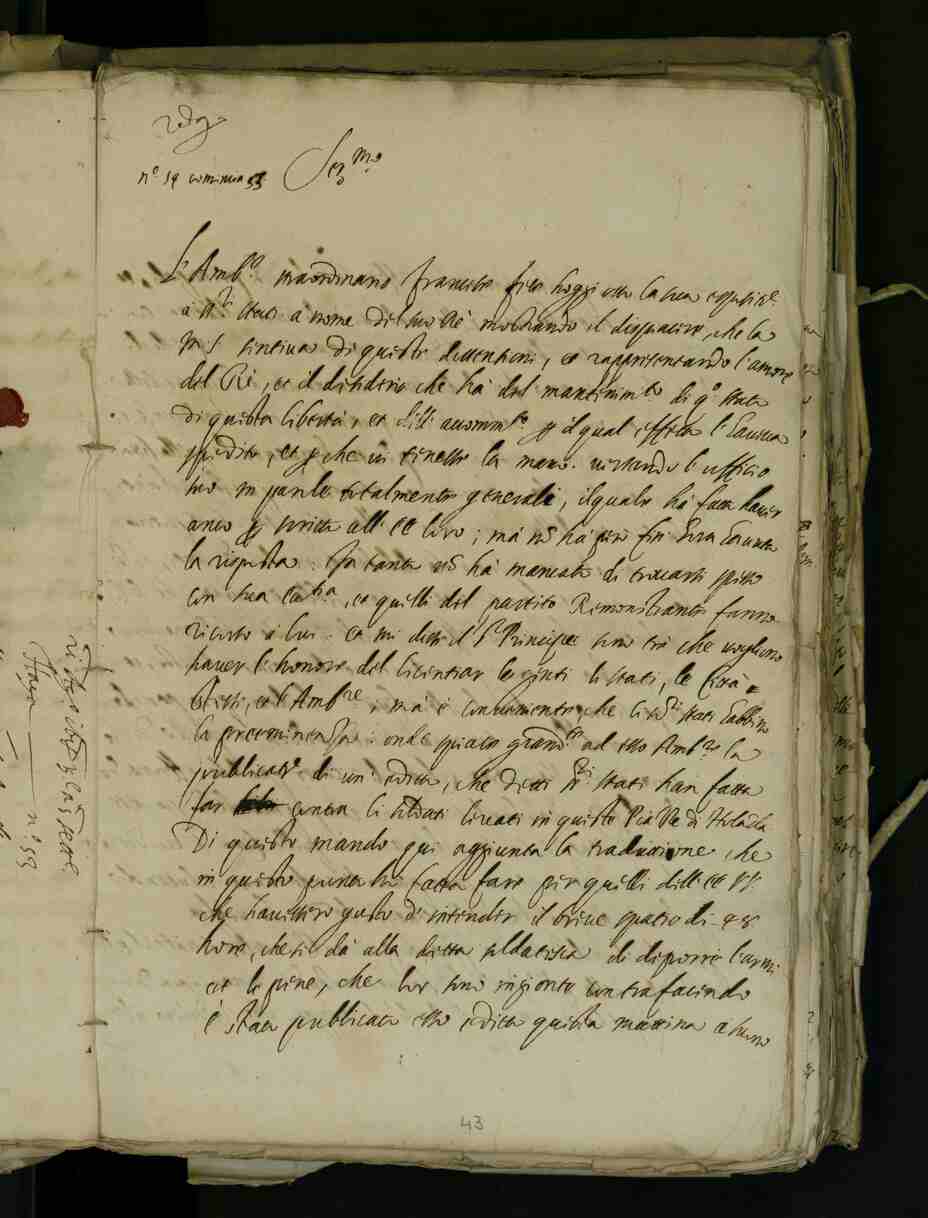 n.º 59 comincia 53
Ser.mo
L'Amb.r straordinario Francese fece hoggi otto la sua espositne
à SS.ri Stati à nome del suo Rè mostrando il dispiacere, che la
M. S. sentiva di queste dissentioni, et rappresentando l'amore
del Rè, et il desiderio che hà del mantenim.to di q.o stato
di questa libertà, et dell' accomm.to per il qual effetto l'haveva
spedito, et perche vi tenesse la mano. versando l'ufficio
suo in parole totalmente generali, il quale hà fatto haver
anco per scritto all' EE. loro; mà nõ hà però fin hora havuta
la risposta. Fra tanto nõ hà mancato di trovarsi spesso
con sua Ecc.tia, et quelli del partito Remonstrante fanno
ricorso à lui. et mi disse il S.r Principe sono trè che vogliono
haver l'honore del licentiar le genti li Stati, le Città
stesse, et l'Amb.re, mà è conveniente, che li SS.ri Stati habbino
la preeminenza: onde spiacque grand.te ad esso Amb.r la
publicat.ne di un' editto, che detti SS.ri Stati han fatto
far contra li soldati levati in queste Pia
di Holãda
Di questo mando qui aggiunta la traduttione, che
in questo punto hò fatta fare per quelli dell' EE. VV.
che havessero gusto d'intender il breve spatio di 48
hore, che si dà alla detta soldatesca di deporre l'armi
et le pene, che lor sono ingionte contrafacendo
è stato publicato esso editto questa mattina à suono
43
n.º 53